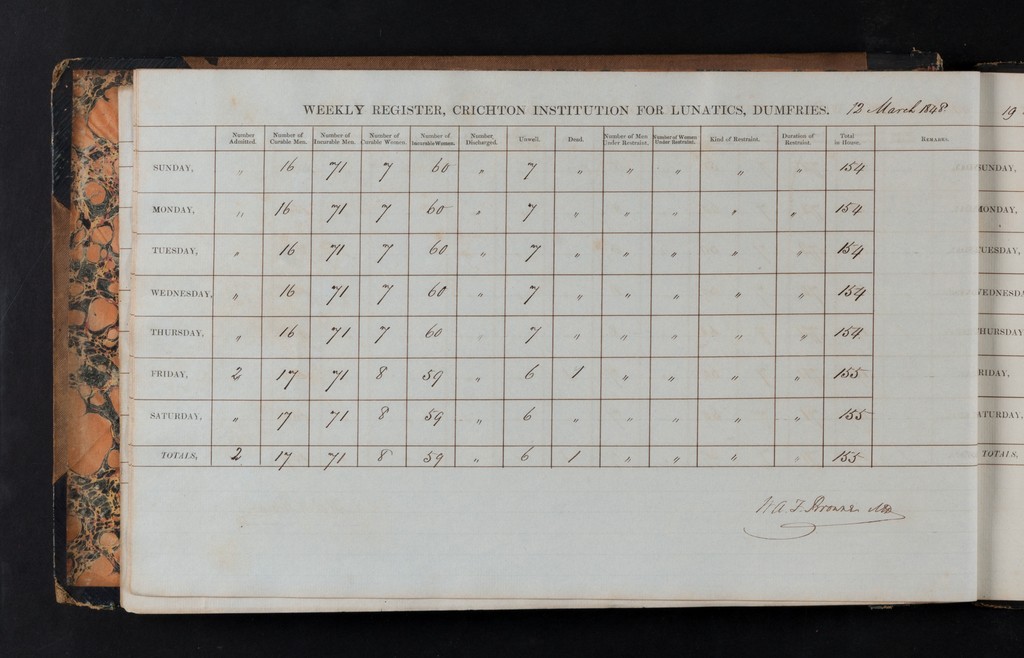 WEEKLY REGISTER, CRICHTON INSTITUTION FOR LUNATICS, DUMFRIES. 12 March 1848 19
Number Admitted. Number of Curable Men. Number of Incurable Men. Number of Curable Women. Number of Incurable Women. Number Discharged. Unwell. Dead. Number of Men Under Restraint. Number of Women Under Restraint. Kind of Restraint. Duration of Restraint. Total in House. Remarks.
SUNDAY, " 16 71 7 60 " 7 " " " " " 154 SUNDAY,
MONDAY, " 16 71 7 60 " 7 " " " " " 154 MONDAY,
TUESDAY, " 16 71 7 60 " 7 " " " " " 154 TUESDAY,
WEDNESDAY, " 16 71 7 60 " 7 " " " " " 154 WEDNESDA
THURSDAY, " 16 71 7 60 " 7 " " " " " 154 THURSDAY
FRIDAY, 2 17 71 8 59 " 6 1 " " " " 155 RIDAY,
SATURDAY, " 17 71 8 59 " 6 " " " " " 155 ATURDAY,
TOTALS, 2 17 71 8 59 " 6 1 " " " " 155 TOTALS,
W. A. F. Browne MD